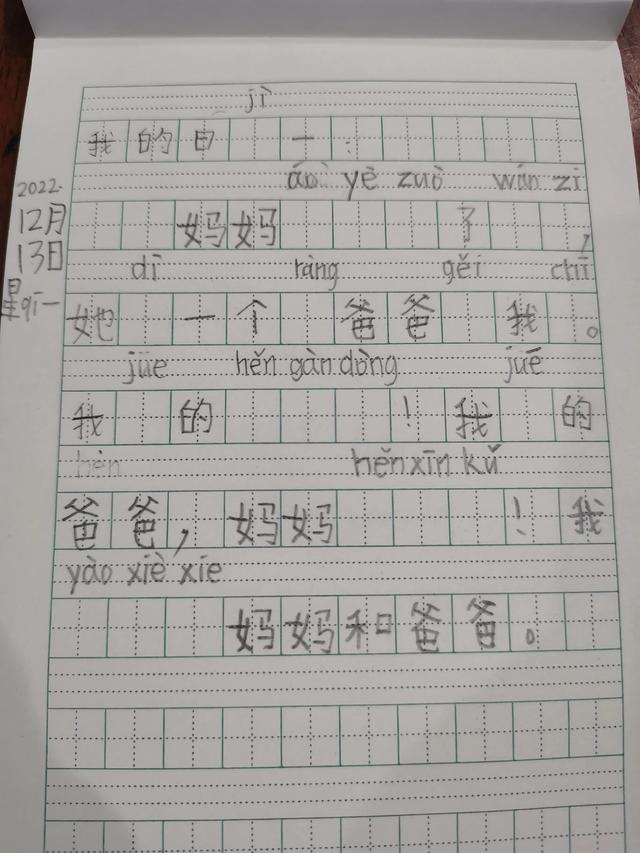 jì
我的日 一:
2022.
12月
13日
星qī一
áo yè zuò wán zi
妈妈 了 ,
dì ràng gěi chī
她 一个 爸爸 我 。
jüe hěn gàn dòng jüē
我 的 ! 我 的
hěn xīn kǔ
爸爸,妈妈 ! 我
yào xiè xie
妈妈和爸爸。